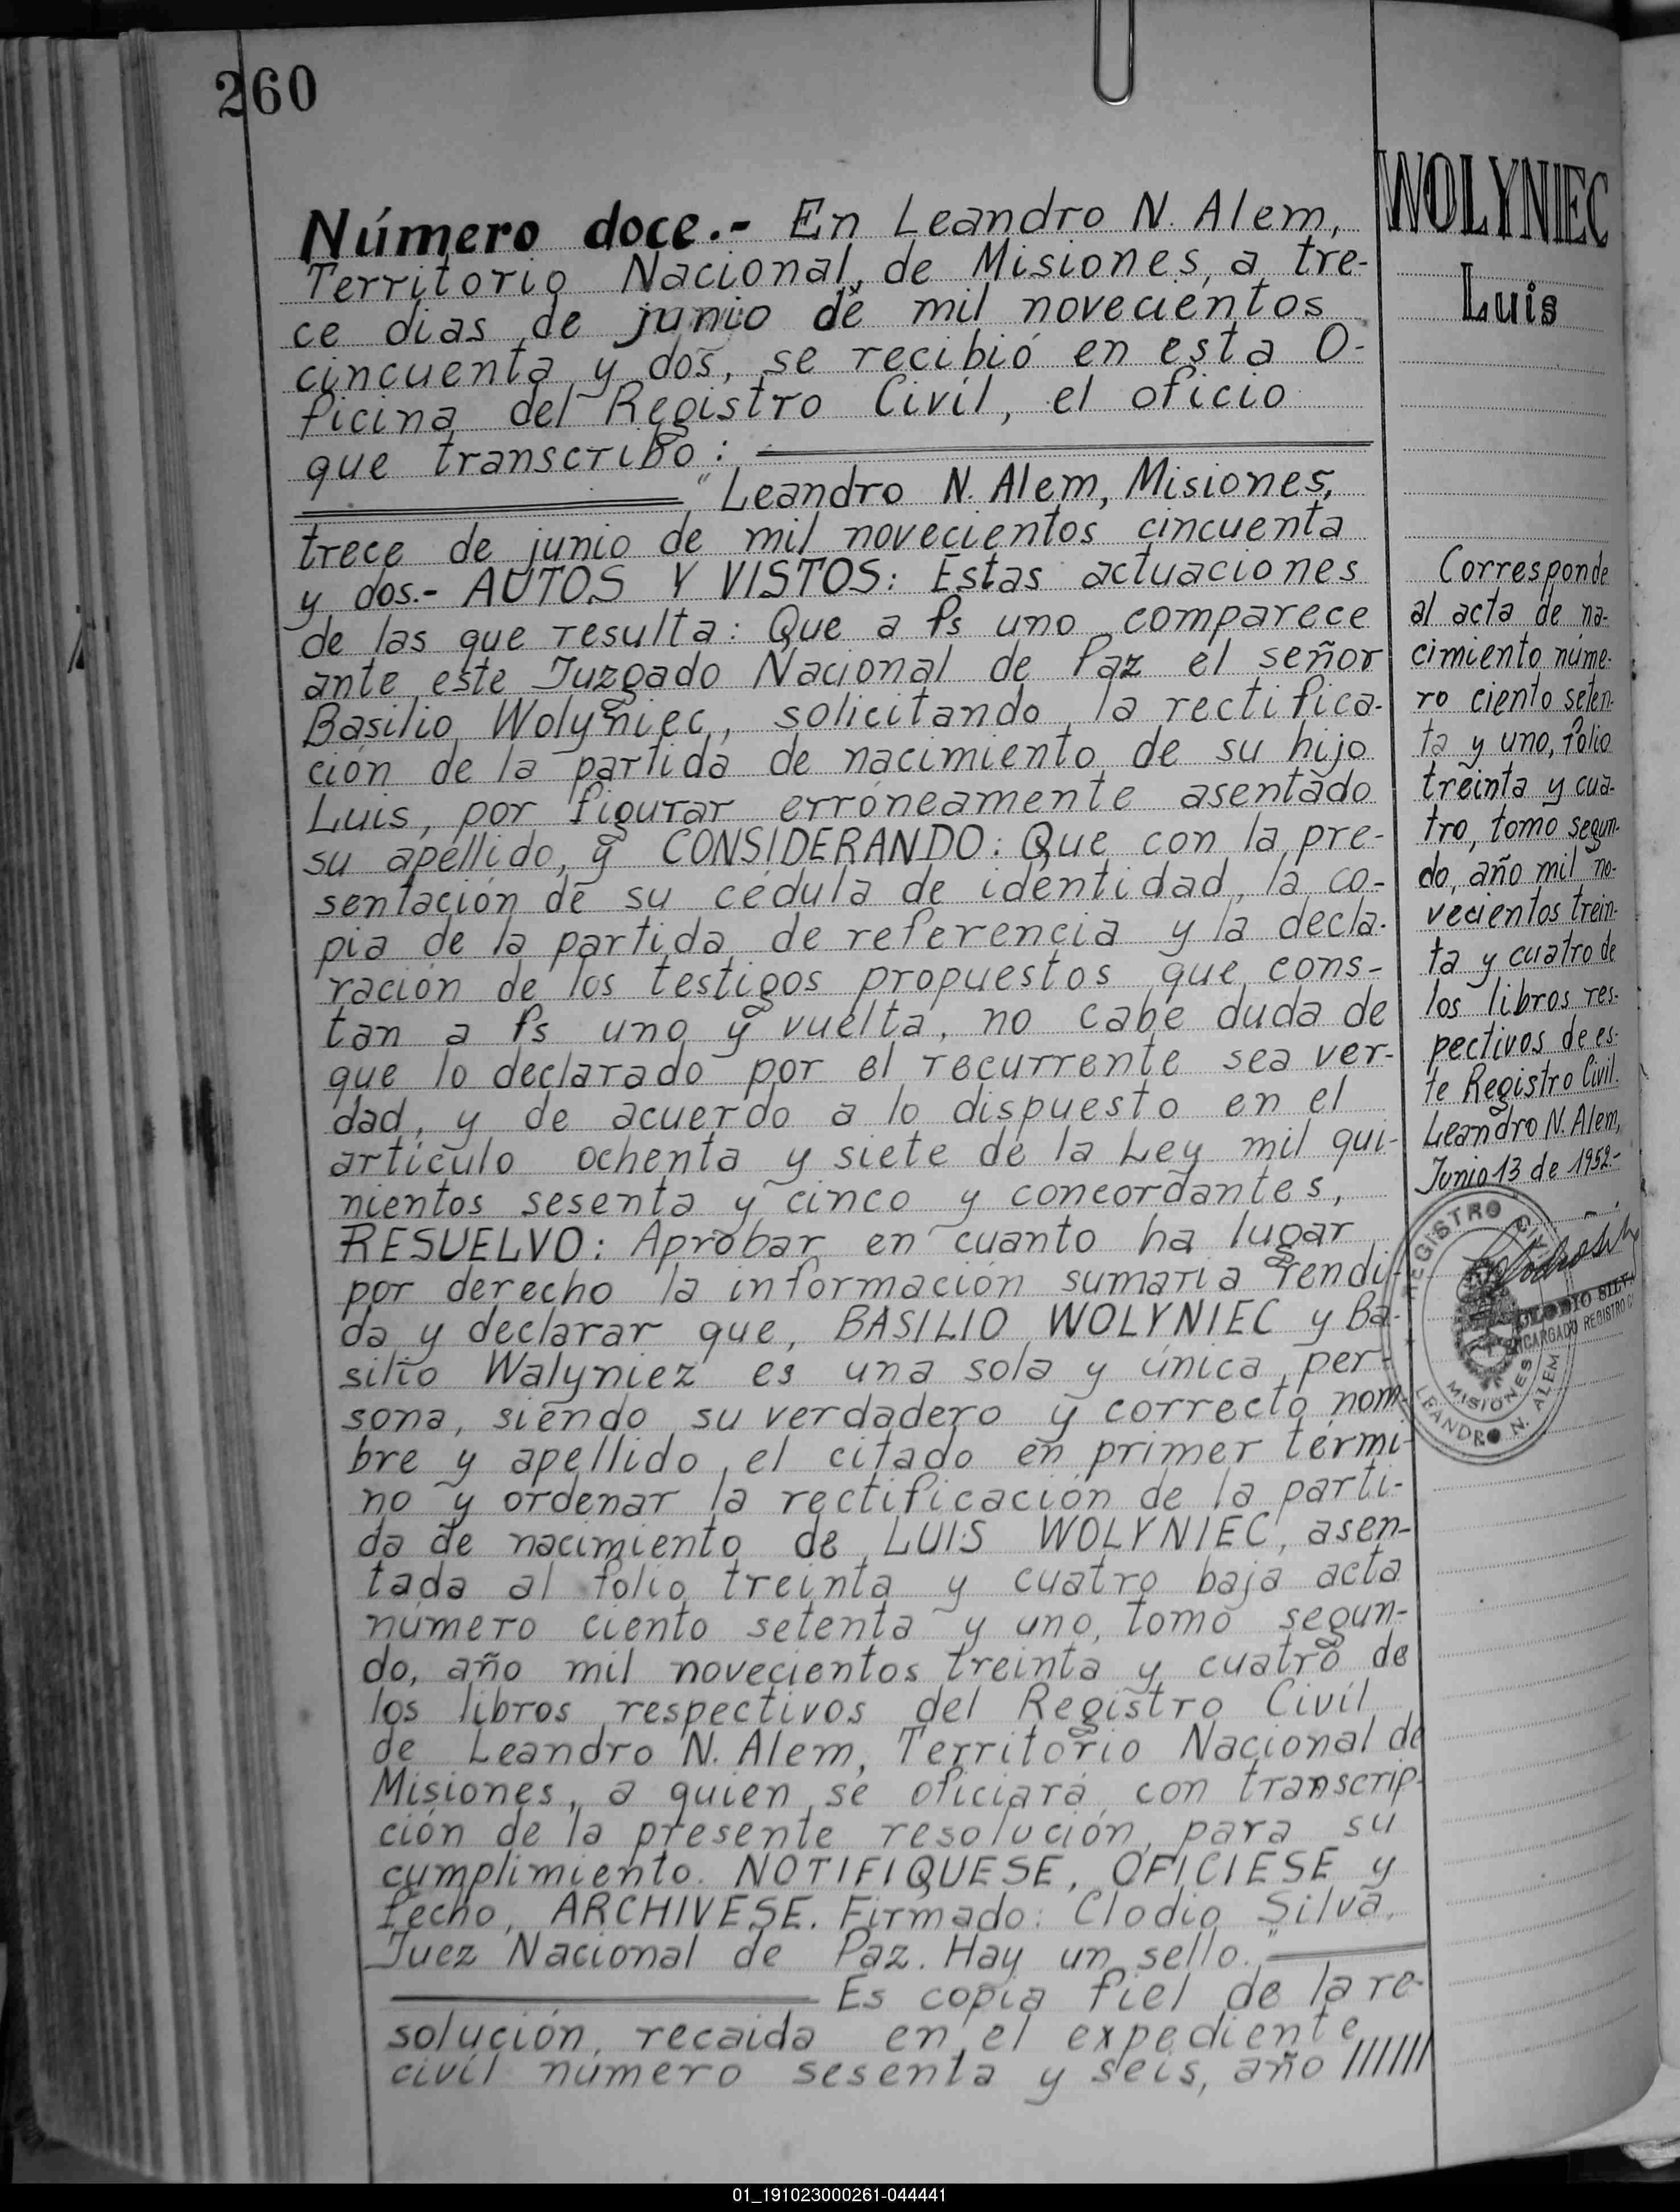 260
Número doce.- En Leandro N. Alem,
Territorio Nacional de Misiones, a tre-
ce dias de junio de mil novecientos
cincuenta y dos, se recibió en esta O-
ficina del Registro Civil, el oficio
que transcribo:
"Leandro N. Alem, Misiones,
trece de junio de mil novecientos cincuenta
y dos.- AUTOS Y VISTOS: Estas actuaciones
de las que resulta: Que a fs uno comparece
ante este Juzgado Nacional de Paz el señor
Basilio Wolyniec, solicitando la rectifica-
ción de la partida de nacimiento de su hijo
Luis, por figurar erróneamente asentado
su apellido, y CONSIDERANDO: Que con la pre-
sentación de su cédula de identidad, la co-
pia de la partida de referencia y la decla-
ración de los testigos propuestos que cons-
tan a fs uno y vuelta, no cabe duda de
que lo declarado por el recurrente sea ver-
dad, y de acuerdo a lo dispuesto en el
artículo ochenta y siete de la Ley mil qui-
nientos sesenta y cinco y concordantes,
RESUELVO: Aprobar en cuanto ha lugar
por derecho la información sumaria rendi-
da y declarar que, BASILIO WOLYNIEC y Ba-
silio Walyniez es una sola y única per-
sona, siendo su verdadero y correcto nom-
bre y apellido el citado en primer térmi-
no y ordenar la rectificación de la parti-
da de nacimiento de LUIS WOLYNIEC, asen-
tada al folio treinta y cuatro baja acta
número ciento setenta y uno, tomo segun-
do, año mil novecientos treinta y cuatro de
los libros respectivos del Registro Civil
de Leandro N. Alem, Territorio Nacional de
Misiones, a quien se oficiará con transcrip-
ción de la presente resolución, para su
cumplimiento. NOTIFIQUESE, OFICIESE y
fecho, ARCHIVESE. Firmado: Clodio Silva,
Juez Nacional de Paz. Hay un sello."
Es copia fiel de la re-
solución, recaida en el expediente
civil número sesenta y seis, año //////
WOLYNIEC
Luis
Corresponde
al acta de na-
cimiento núme-
ro ciento seten-
ta y uno, folio
treinta y cua-
tro, tomo segun-
do, año mil no-
vecientos trein-
ta y cuatro de
los libros res-
pectivos de es-
te Registro Civil.
Leandro N. Alem,
Junio 13 de 1952.-
REGISTRO CIVIL
CLODIO SILVA
ENCARGADO REGISTRO C
MISIONES
LEANDRO N. ALEM
01_191023000261-044441